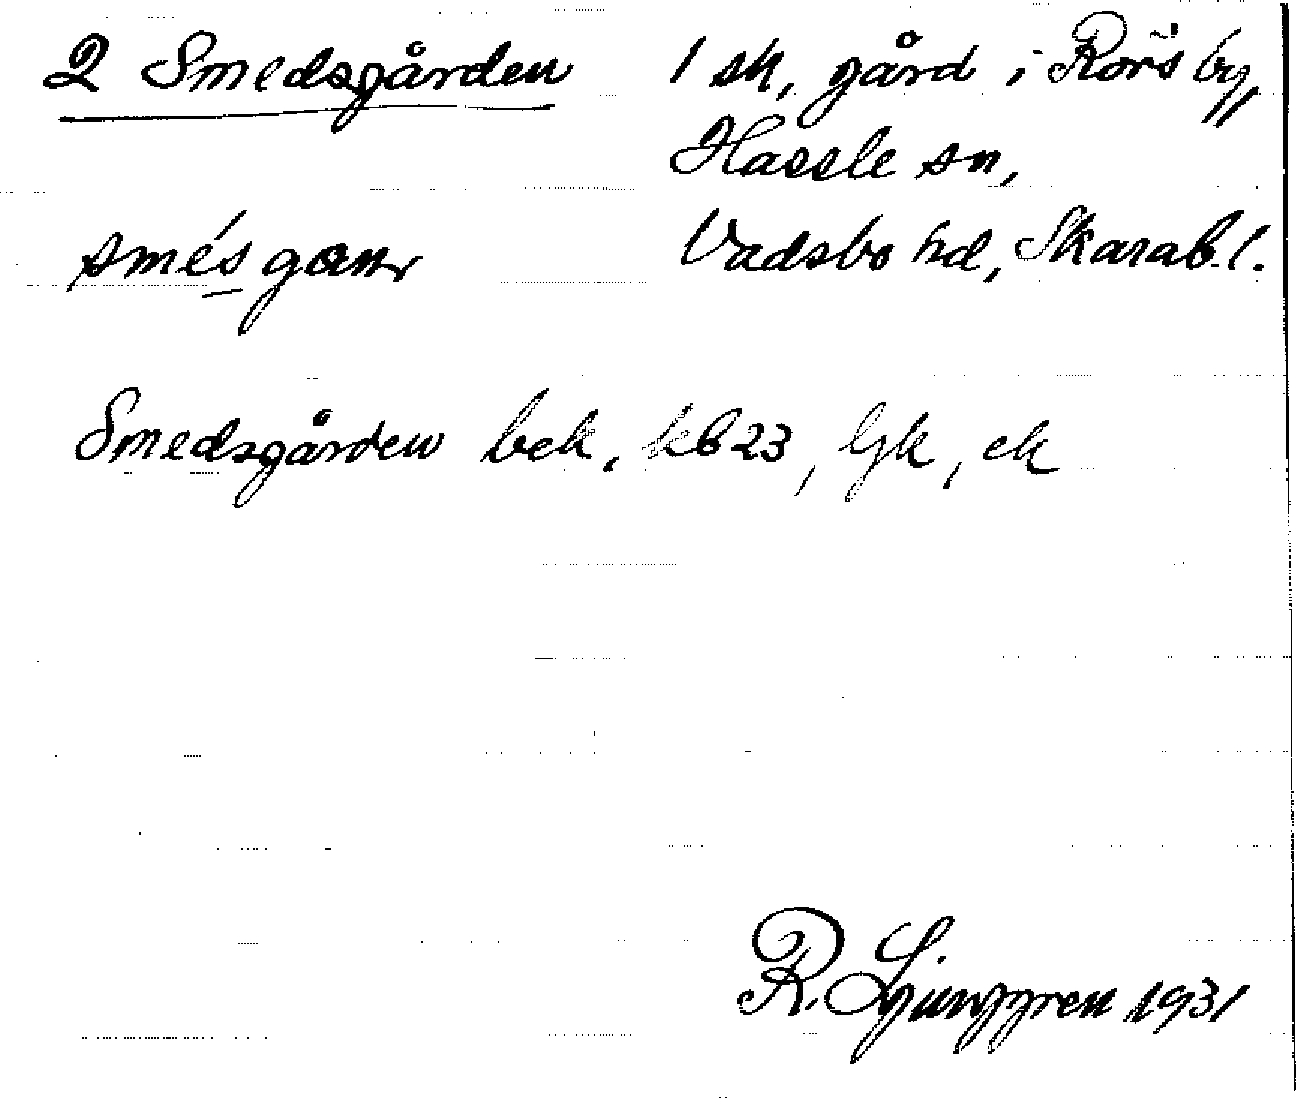 2 Smedsgården 1 sk, gård i Rörs by,
Hassle sn,
smésgɑnr Vadsbo hd, Skarab. l.
Smedsgården bek, kb 23, Gk, ek
R. Ljunggren 1931